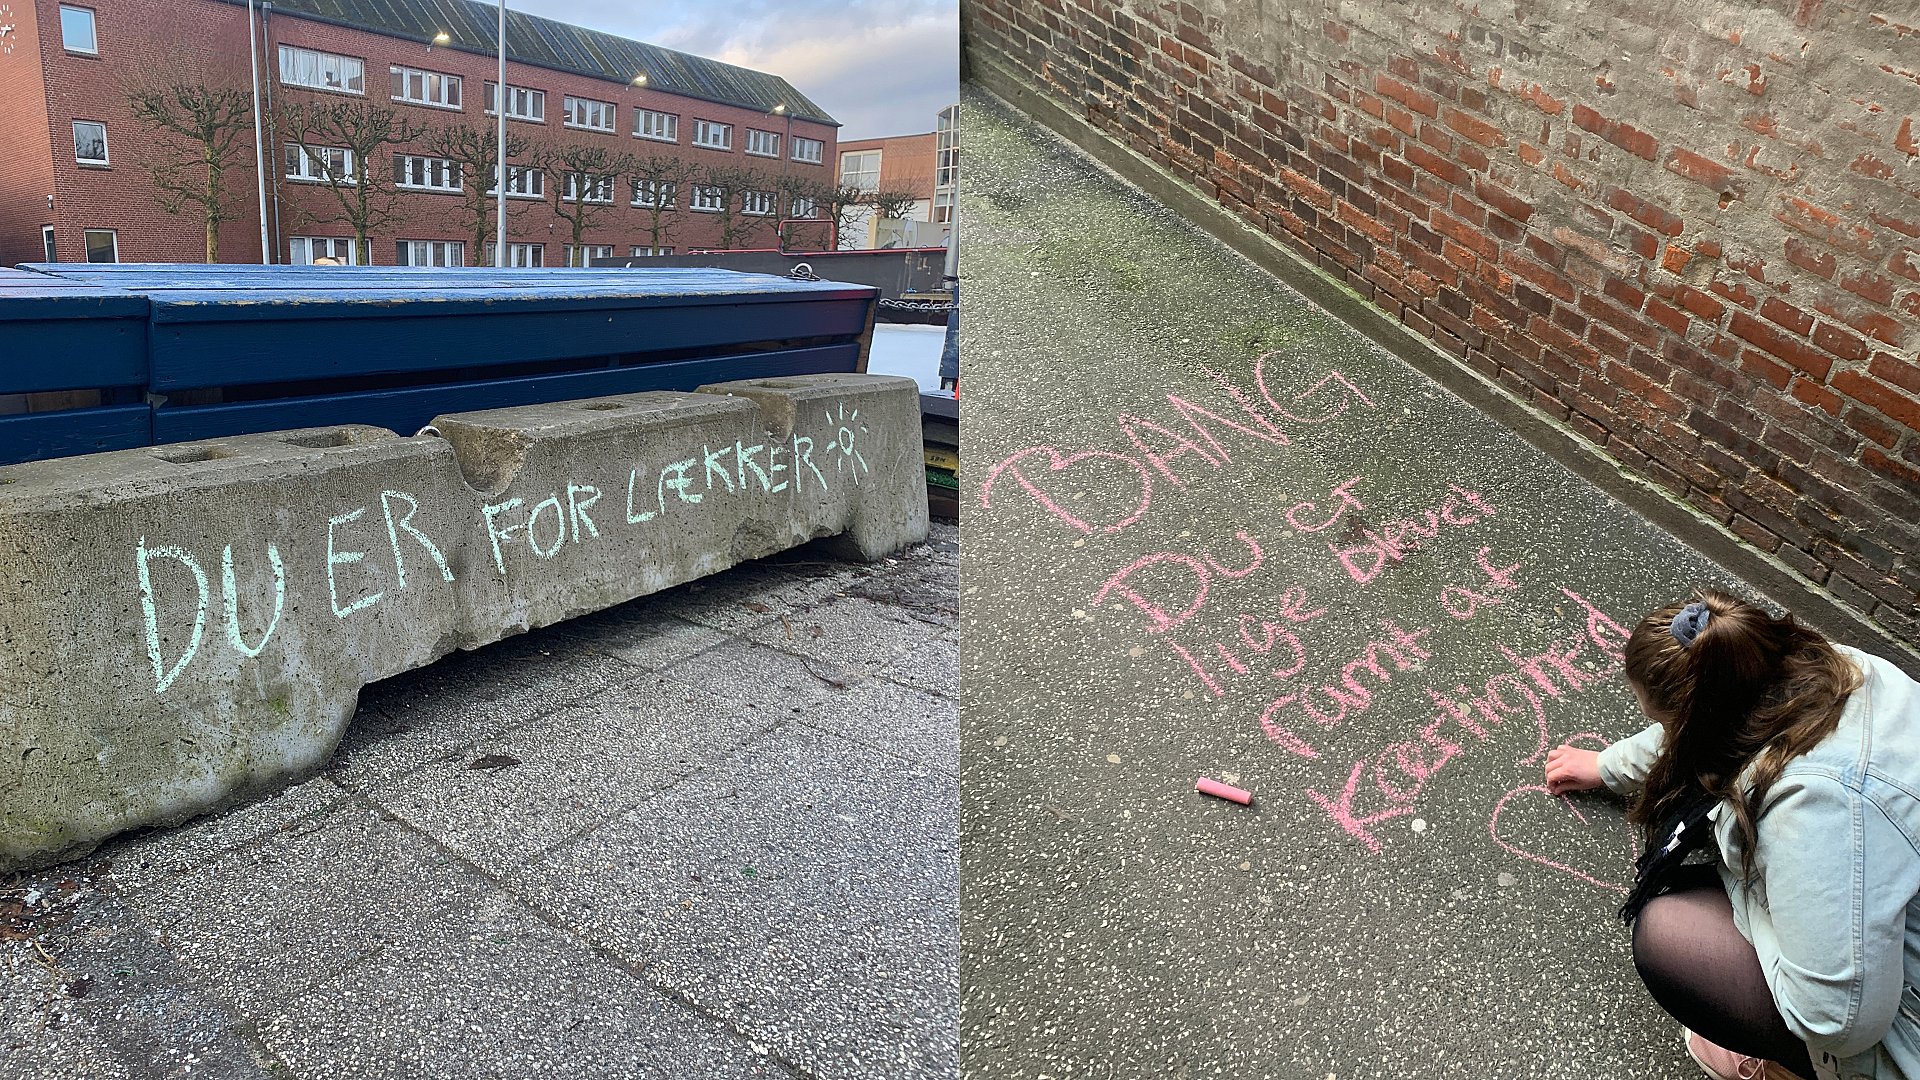 DU ER FOR LÆKKER
BANG
DU ER
lige blevet
ramt af
Kærlighed